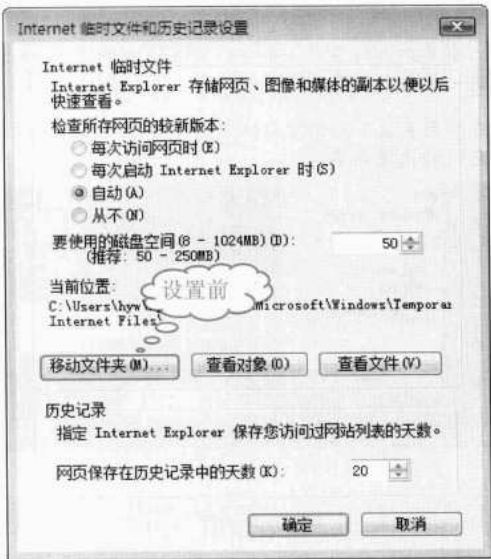 Internet 临时文件和历史记录设置
Internet 临时文件
Internet Explorer 存储网页、图像和媒体的副本以便以后
快速查看。
检查所存网页的较新版本:
每次访问网页时(E)
每次启动 Internet Explorer 时(S)
自动(A)
从不(N)
要使用的磁盘空间(8 - 1024MB)(D): 50
(推荐: 50 - 250MB)
当前位置:
设置前
C:\Users\hyw\ icrosoft\Windows\Temporar
Internet Files\
移动文件夹(M)... 查看对象(O) 查看文件(V)
历史记录
指定 Internet Explorer 保存您访问过网站列表的天数。
网页保存在历史记录中的天数(K): 20
确定 取消